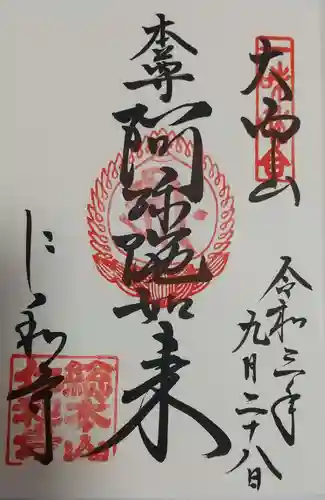 大内山
令和三年
九月二十八日
本尊
阿弥陀如来
仁和寺
総本山